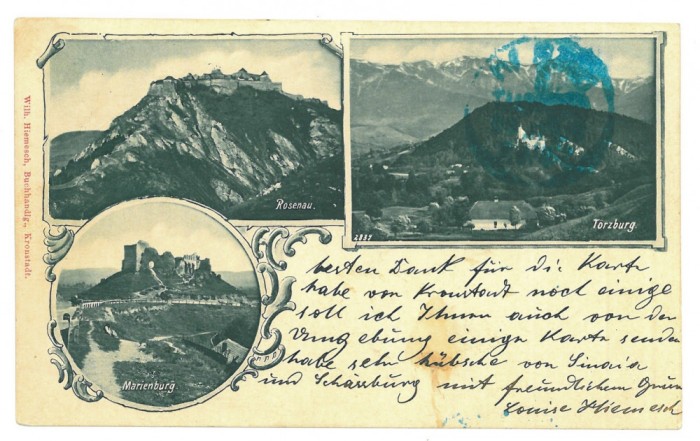 Wilh. Hiemesch, Buchhandlg., Kronstadt.
Rosenau.
2887
Törzburg.
Marienburg.
besten Dank für die Karte
habe von Kronstadt noch einige
soll ich Ihnen auch von der
Umgebung einige Karte senden
habe sehr hübsche von Sinaia
und Schässburg mit freundlichem Gruss
Louise Hiemesch